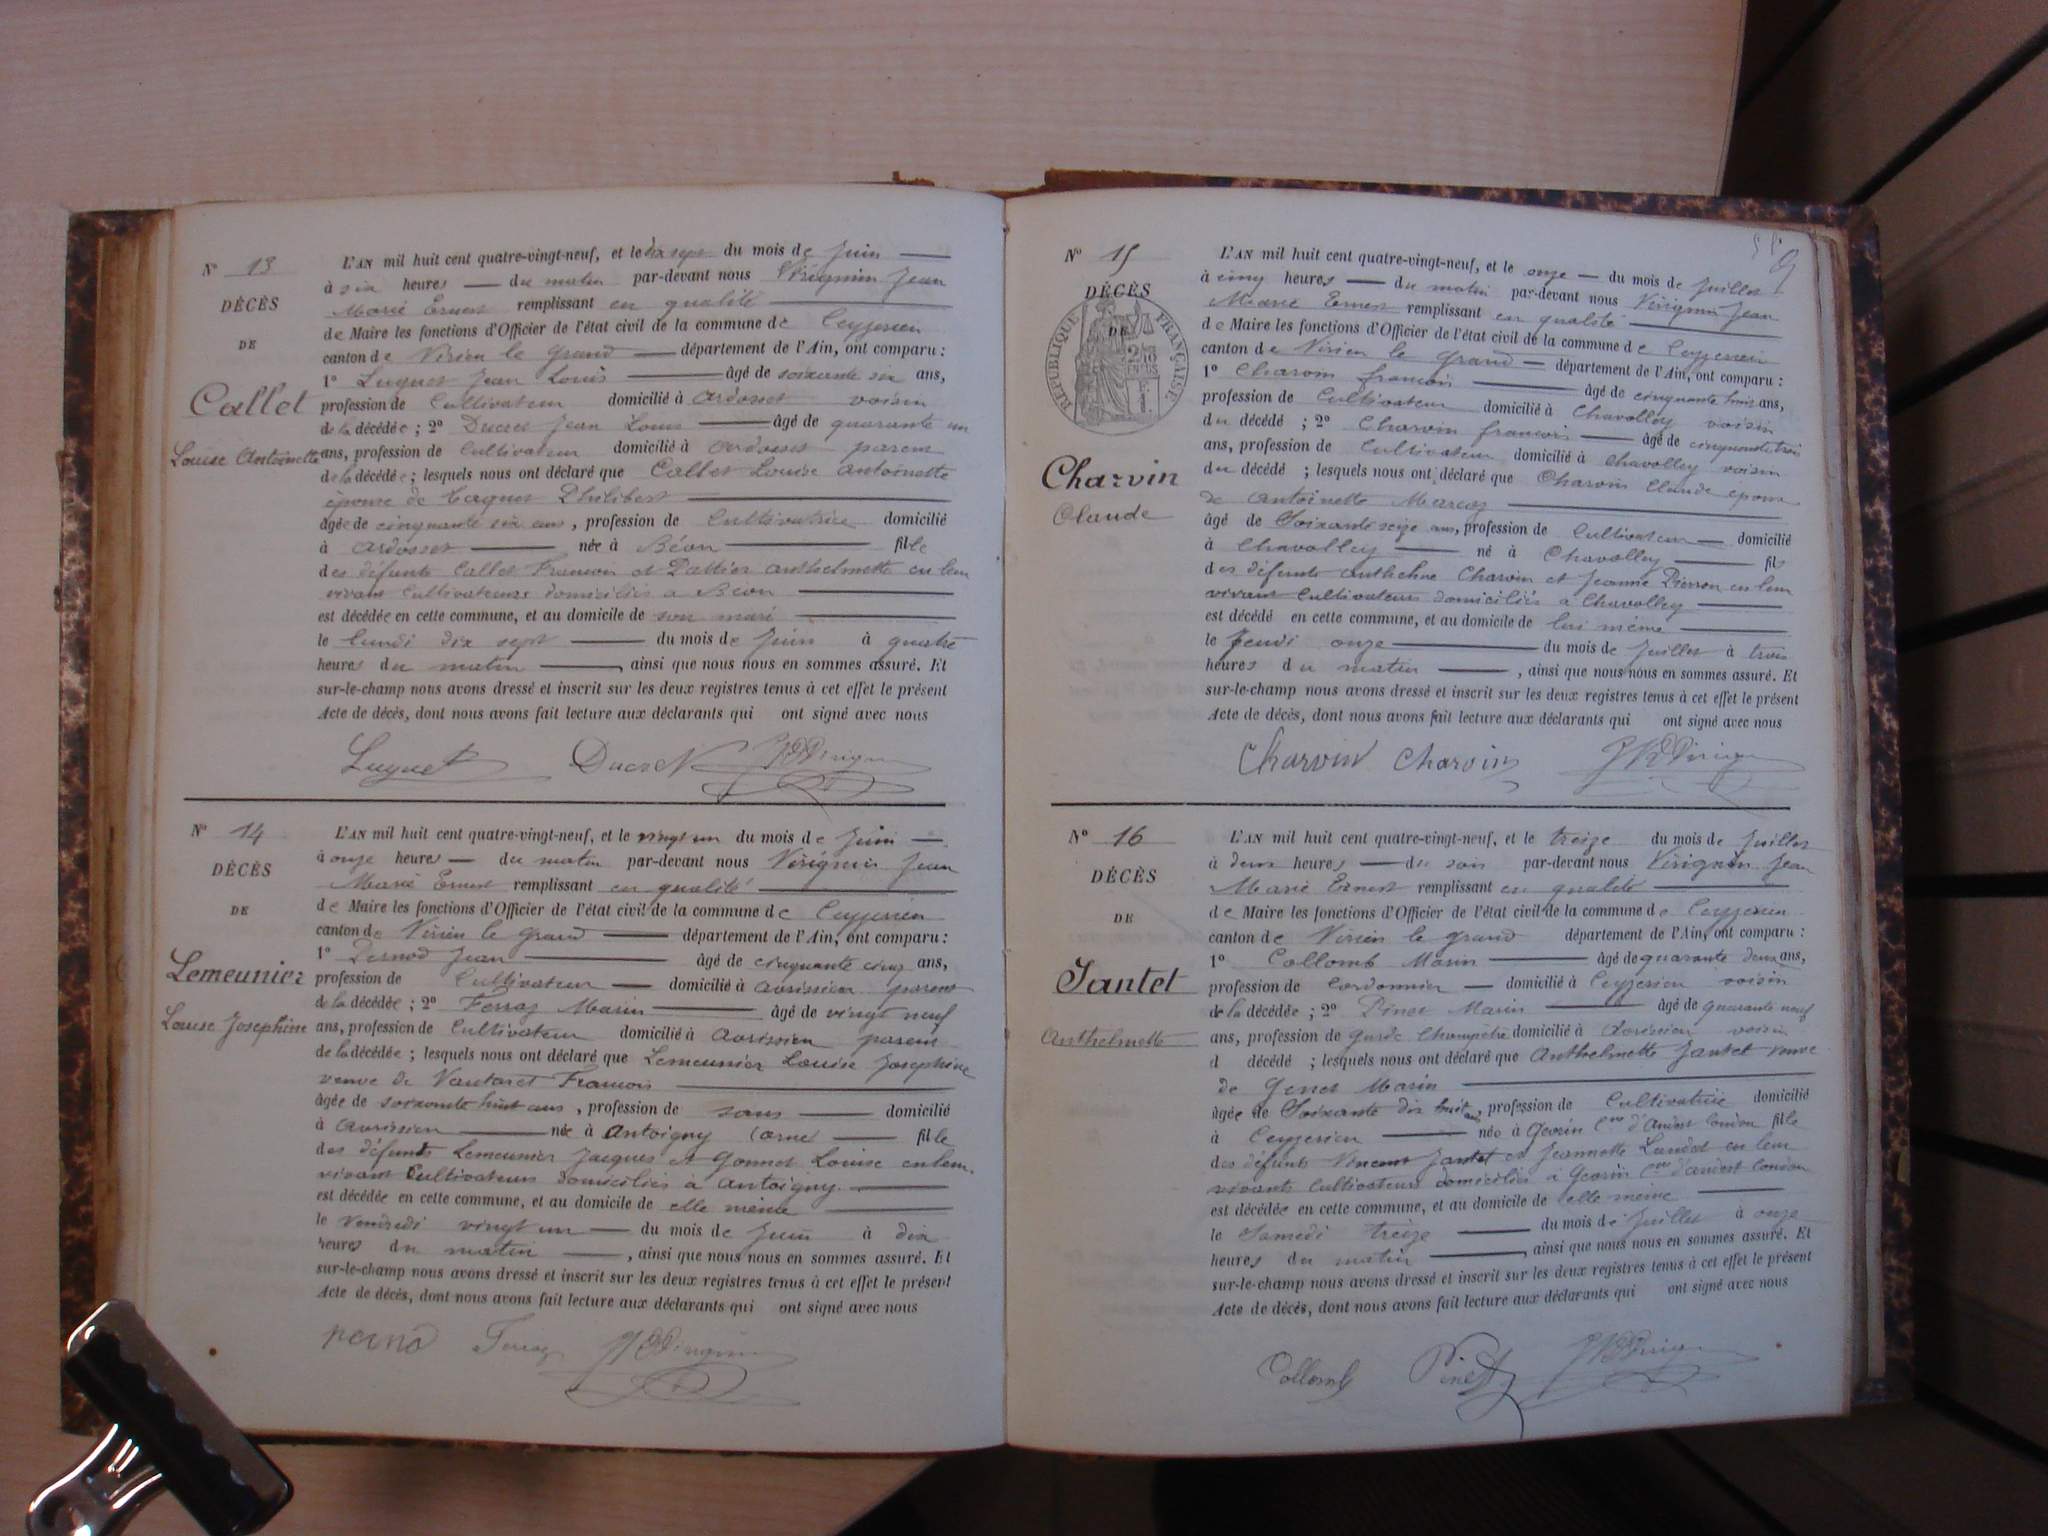 N° 13
DÉCÈS
DE
Callet
Louise Antoinette
L'AN mil huit cent quatre-vingt-neuf, et le dix sept du mois de Juin
à six heures du matin par-devant nous Virignin Jean
Marie Ernest remplissant en qualité
de Maire les fonctions d'Officier de l'état civil de la commune de Ceyzerieu
canton de Virieu le grand département de l'Ain, ont comparu :
1° Luquet Jean Louis âgé de soixante six ans,
profession de Cultivateur domicilié à Ardosset voisin
de la décédée ; 2° Ducret Jean Louis âgé de quarante un
ans, profession de Cultivateur domicilié à Ardosset parent
de la décédée ; lesquels nous ont déclaré que Callet Louise Antoinette
épouse de Philibert
âgée de cinquante six ans, profession de Cultivatrice domicilié
à Ardosset née à Béon fille
des défunts Callet François et Dattier Anthelmette en leur
vivant Cultivateurs domiciliés à Béon
est décédée en cette commune, et au domicile de son mari
le lundi dix sept du mois de Juin à quatre
heures du matin, ainsi que nous nous en sommes assuré. Et
sur-le-champ nous avons dressé et inscrit sur les deux registres tenus à cet effet le présent
Acte de décès, dont nous avons fait lecture aux déclarants qui ont signé avec nous
Luquet Ducret
N° 14
DÉCÈS
DE
Lemeunier
Louise Josephine
L'AN mil huit cent quatre-vingt-neuf, et le vingt un du mois de Juin
à onze heures du matin par-devant nous Virignin Jean
Marie Ernest remplissant en qualité
de Maire les fonctions d'Officier de l'état civil de la commune de Ceyzerieu
canton de Virieu le grand département de l'Ain, ont comparu :
1° Jean âgé de cinquante cinq ans,
profession de Cultivateur domicilié à Avrissieu parent
de la décédée ; 2° Ferraz Marin âgé de vingt neuf
ans, profession de Cultivateur domicilié à Avrissieu parent
de la décédée ; lesquels nous ont déclaré que Lemeunier Louise Josephine
veuve de Vautaret François
âgée de soixante huit ans, profession de sans domicilié
à Avrissieu née à Antoigny (orne) fille
des défunts Lemeunier Jacques et Gonnet Louise en leur
vivant Cultivateurs domiciliés à Antoigny
est décédée en cette commune, et au domicile de elle même
le Vendredi vingt un du mois de Juin à dix
heures du matin, ainsi que nous nous en sommes assuré. Et
sur-le-champ nous avons dressé et inscrit sur les deux registres tenus à cet effet le présent
Acte de décès, dont nous avons fait lecture aux déclarants qui ont signé avec nous
Ferraz
9
N° 15
DÉCÈS
DE
RÉPUBLIQUE FRANÇAISE
Charvin
Claude
L'AN mil huit cent quatre-vingt-neuf, et le onze du mois de Juillet
à cinq heures du matin par-devant nous Virignin Jean
Marie Ernest remplissant en qualité
de Maire les fonctions d'Officier de l'état civil de la commune de Ceyzerieu
canton de Virieu le grand département de l'Ain, ont comparu :
1° Charvin françois âgé de cinquante huit ans,
profession de Cultivateur domicilié à Chavolley voisin
du décédé ; 2° Charvin françois âgé de cinquante trois
ans, profession de Cultivateur domicilié à Chavolley voisin
du décédé ; lesquels nous ont déclaré que Charvin Claude époux
de Antoinette
âgé de Soixante seize ans, profession de Cultivateur domicilié
à Chavolley né à Chavolley fils
des défunts Anthelme Charvin et Jeanne Pierron en leur
vivant Cultivateurs domiciliés à Chavolley
est décédé en cette commune, et au domicile de lui même
le Jeudi onze du mois de Juillet à trois
heures du matin, ainsi que nous nous en sommes assuré. Et
sur-le-champ nous avons dressé et inscrit sur les deux registres tenus à cet effet le présent
Acte de décès, dont nous avons fait lecture aux déclarants qui ont signé avec nous
Charvin Charvin
N° 16
DÉCÈS
DE
Jantet
Anthelmette
L'AN mil huit cent quatre-vingt-neuf, et le treize du mois de Juillet
à deux heures du soir par-devant nous Virignin Jean
Marie Ernest remplissant en qualité
de Maire les fonctions d'Officier de l'état civil de la commune de Ceyzerieu
canton de Virieu le grand département de l'Ain, ont comparu :
1° Collomb Marin âgé de quarante deux ans,
profession de Cordonnier domicilié à Ceyzerieu voisin
de la décédée ; 2° Pinet Marin âgé de quarante neuf
ans, profession de garde Champêtre domicilié à Avrissieu voisin
d décédé ; lesquels nous ont déclaré que Anthelmette Jantet veuve
de Genet Marin
âgée de Soixante dix huit ans, profession de Cultivatrice domicilié
à Ceyzerieu née à Gevrin Cne d'Andert Condon fille
des défunts Vincent Jantet et Jeannette en leur
vivants Cultivateurs domiciliés à Gevrin Cne d'andert Condon
est décédée en cette commune, et au domicile de elle même
le Samedi treize du mois de Juillet à onze
heures du matin, ainsi que nous nous en sommes assuré. Et
sur-le-champ nous avons dressé et inscrit sur les deux registres tenus à cet effet le présent
Acte de décès, dont nous avons fait lecture aux déclarants qui ont signé avec nous
Collomb Pinet